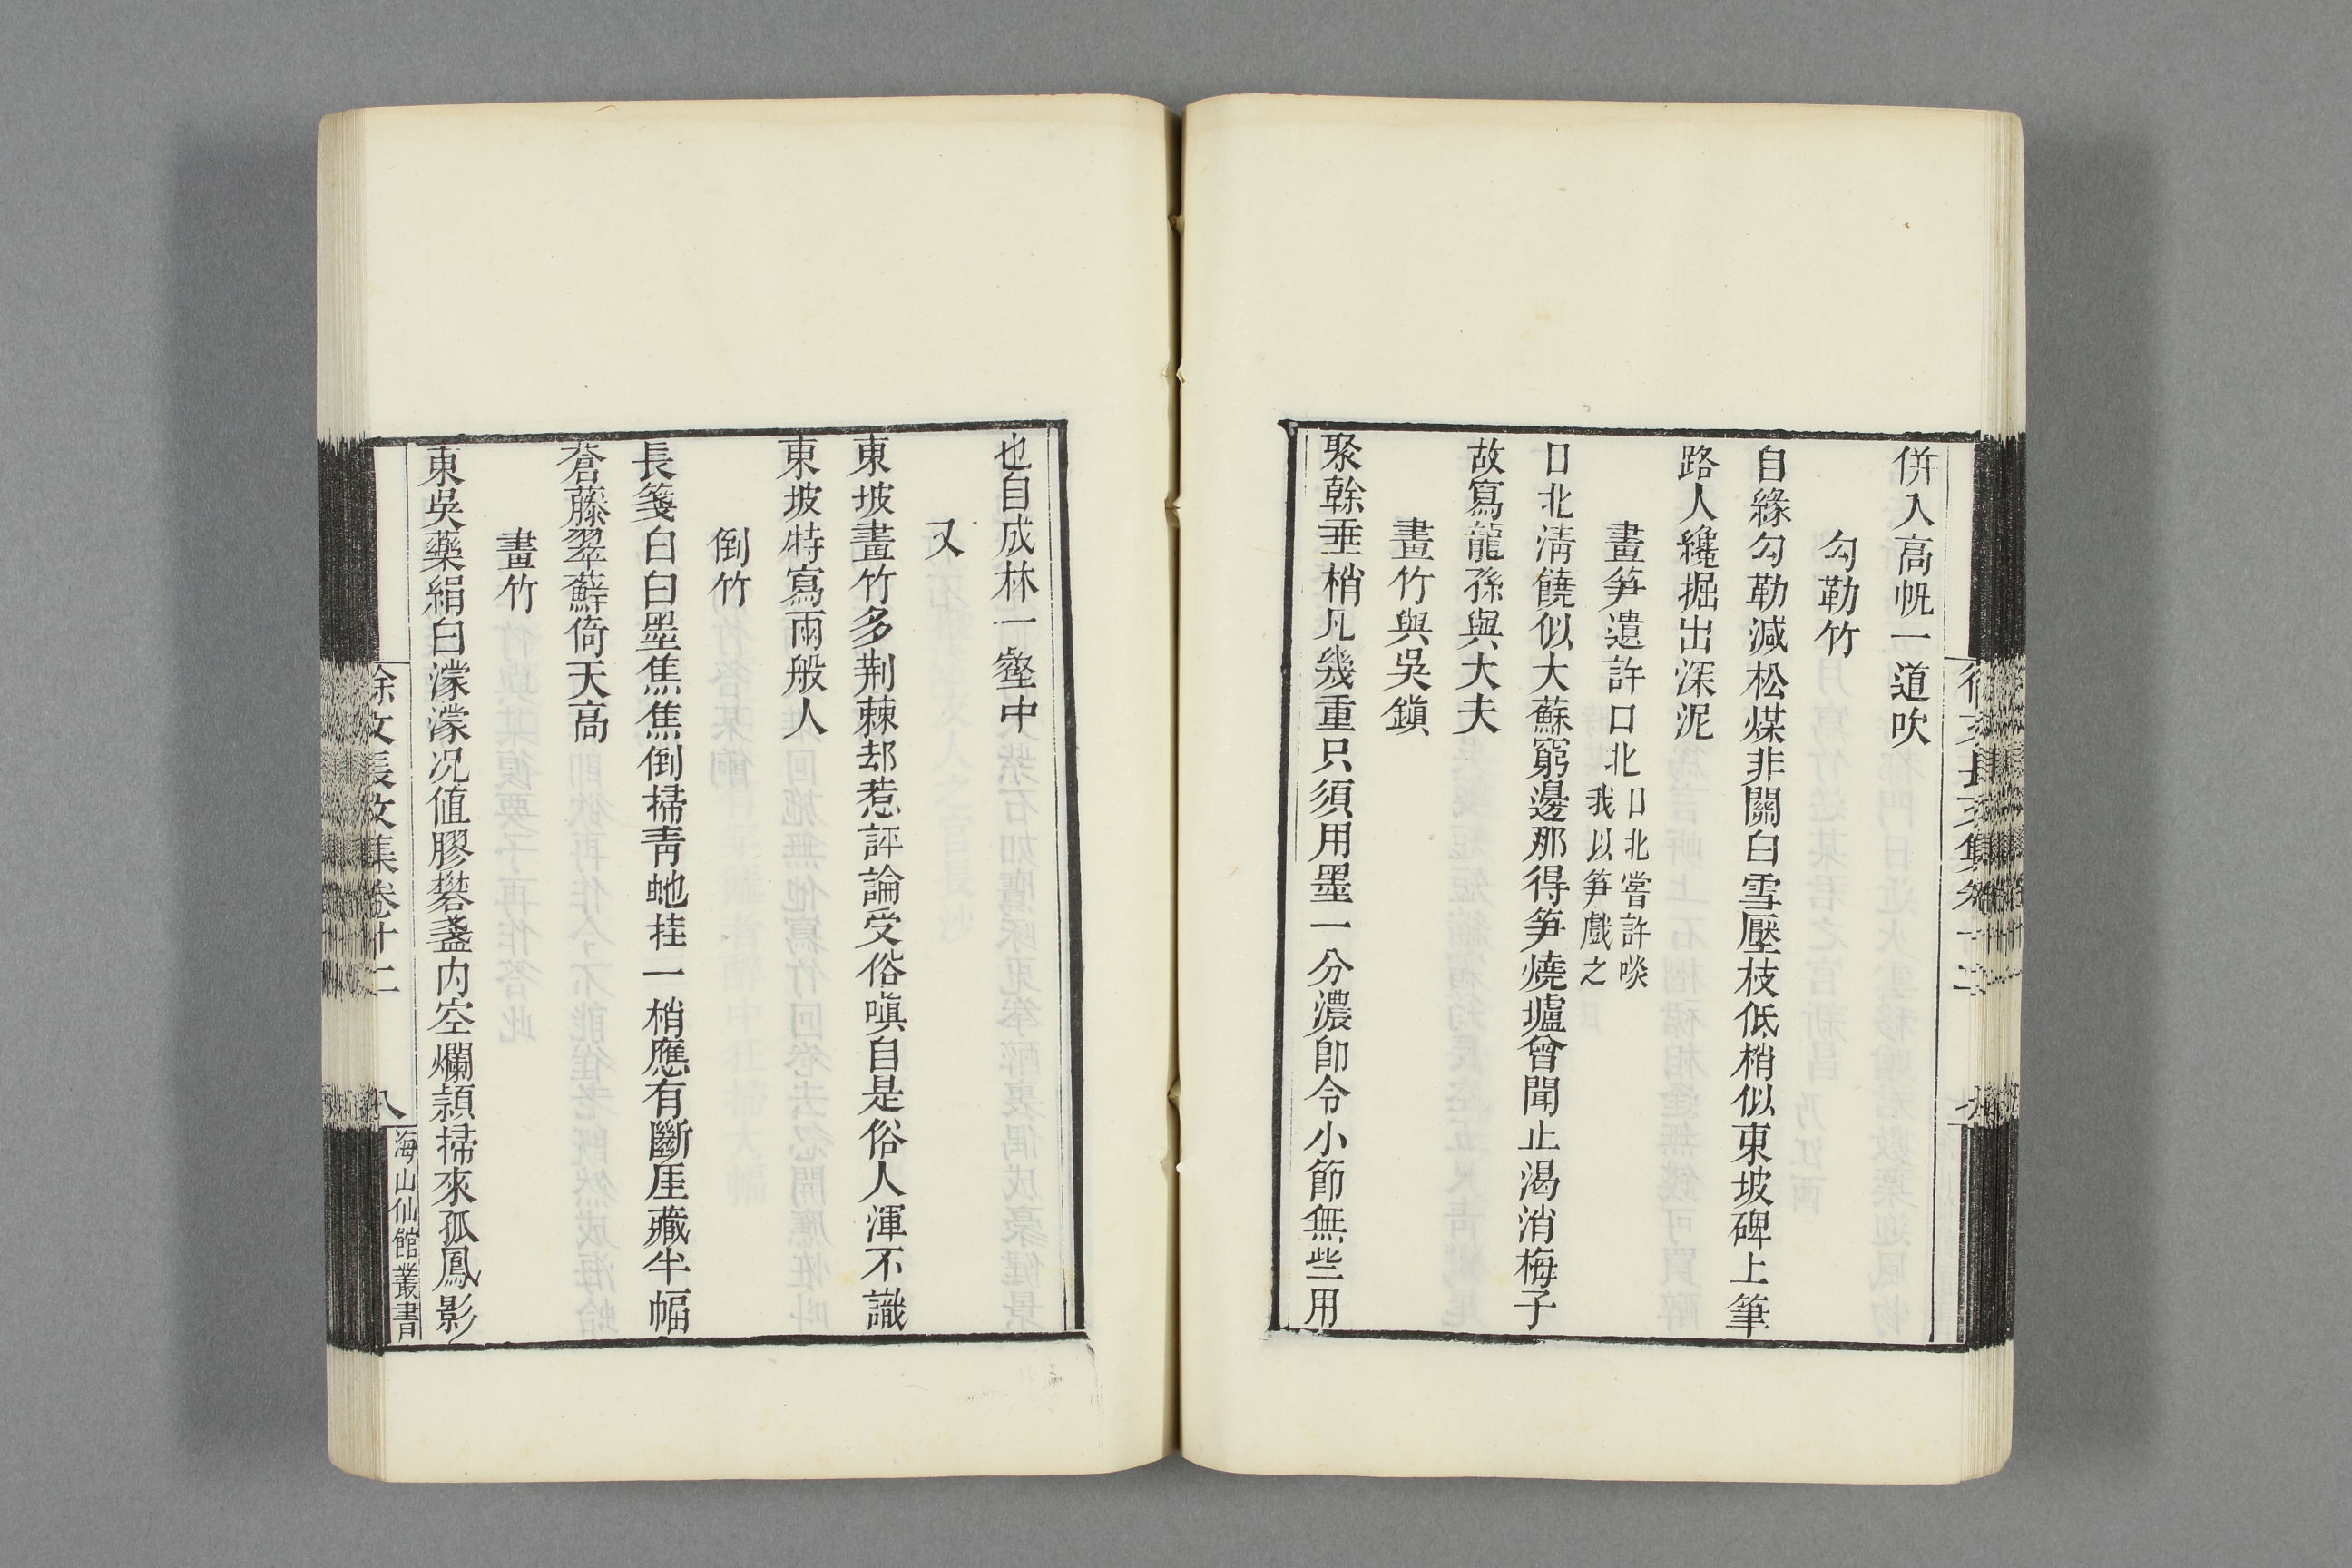 併入高帆一道吹
勾勒竹
自緣勾勒減松煤非關白雪壓枝低梢似東坡碑上筆
路人纔掘出深泥
畫笋遺許口北
口北嘗許啖
我以笋戲之
口北淸饒似大蘇窮邊那得笋燒壚曾聞止渴消梅子
故寫龍孫與大夫
畫竹與吳鎭
聚榦垂梢凡幾重只須用墨一分濃卽令小節無些用
也自成林一壑中
又
東坡畫竹多荆棘却惹評論受俗嗔自是俗人渾不識
東坡特寫兩般人
倒竹
長箋白白墨焦焦倒掃靑虵挂一梢應有斷厓藏半幅
蒼藤翠蘚倚天高
畫竹
東吳藥絹白濛濛况値膠礬盞内空爛頴掃來孤鳳影
徐文長文集卷十二
八
海山仙館叢書